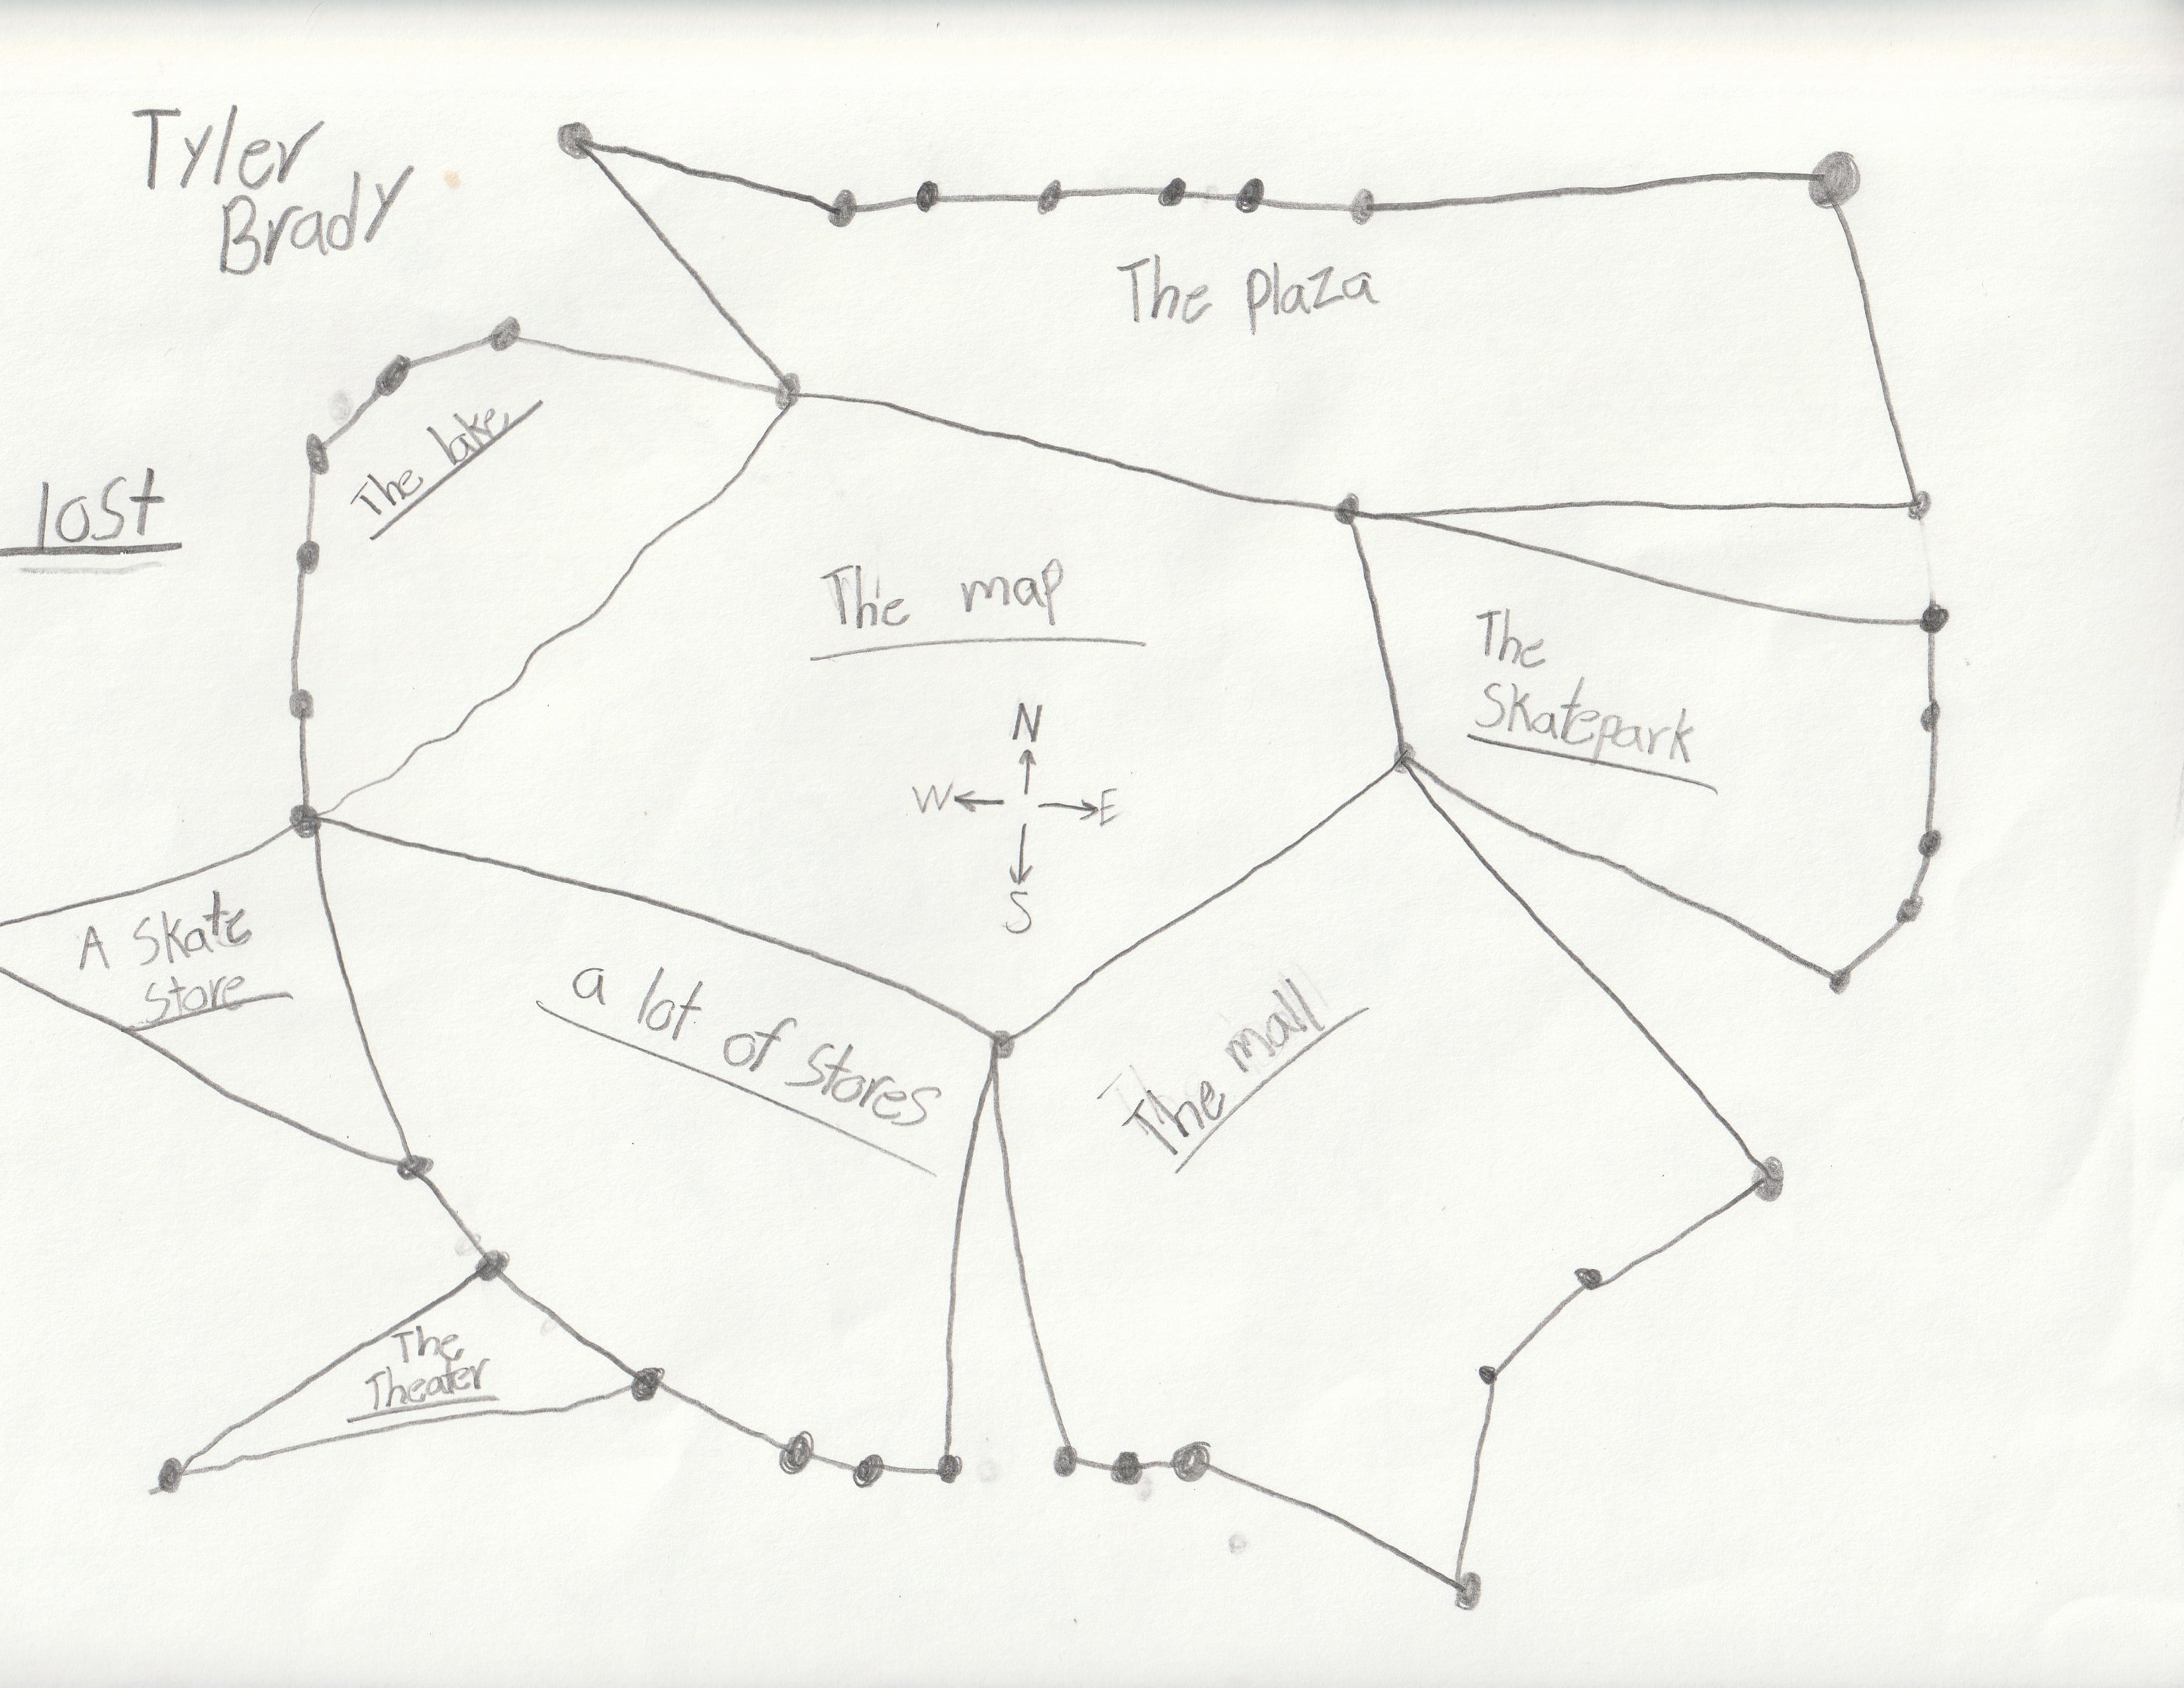 Tyler
Brady
The plaza
The lake
lost
The map
The
Skatepark
N
W E
S
A Skate
Store
a lot of Stores
The mall
The
Theater